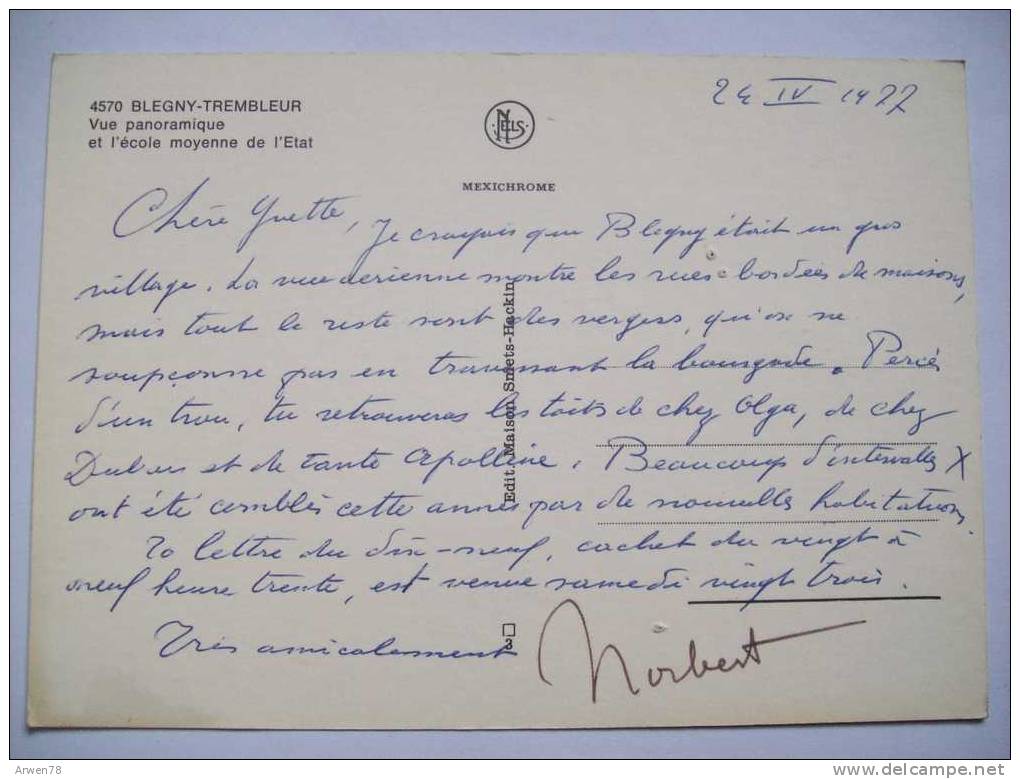 24 IV 1977
4570 BLEGNY-TREMBLEUR
Vue panoramique
et l'école moyenne de l'Etat
NELS
MEXICHROME
Chère Yvette, Je croyais que Blegny était un gros
village. La vue aérienne montre les rues bordées de maisons,
mais tout le reste sont des vergers, qu'on ne
soupçonne pas en traversant la bourgade. Percés
d'un trou, tu retrouveras les toits de chez Olga, de chez
et de tante Apolline. Beaucoup d'intervalles X
ont été comblés cette année par de nouvelles habitations.
Ta lettre du dix-neuf, cachet du vingt à
neuf heure trente, est venue samedi vingt trois.
Très amicalement
Norbert
Edit. Maison Smets-Hackin
3
Arwen78
delcampe.net